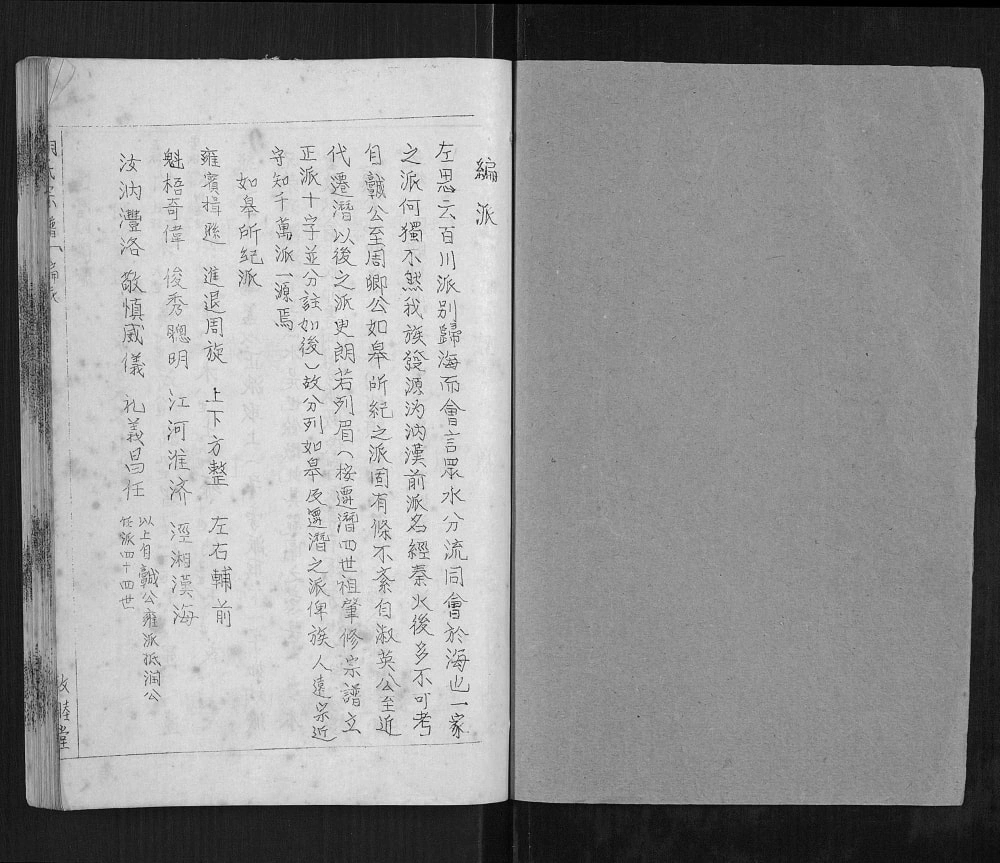 編派
左思云百川派别歸海而會言眾水分流同會於海也一家
之派何獨不然我族發源沔汭漢前派名經秦火後多不可考
自戭公至周卿公如皋所紀之派固有條不紊自淑英公至近
代遷潛以後之派更朗若列眉（按遷潛四世祖肇修宗譜立
正派十字並分註如後）故分列如皋及遷潛之派俾族人遠宗近
守知千萬派一源焉
如皋所紀派
雍賓揖遜 進退周旋 上下方整 左右輔前
魁梧奇偉 俊秀聰明 江河淮济 涇湘漢海
汝汭灃洛 敬慎威儀 礼義昌任 以上自戭公雍派抵润公
任派四十四世
氏宗譜
睦堂